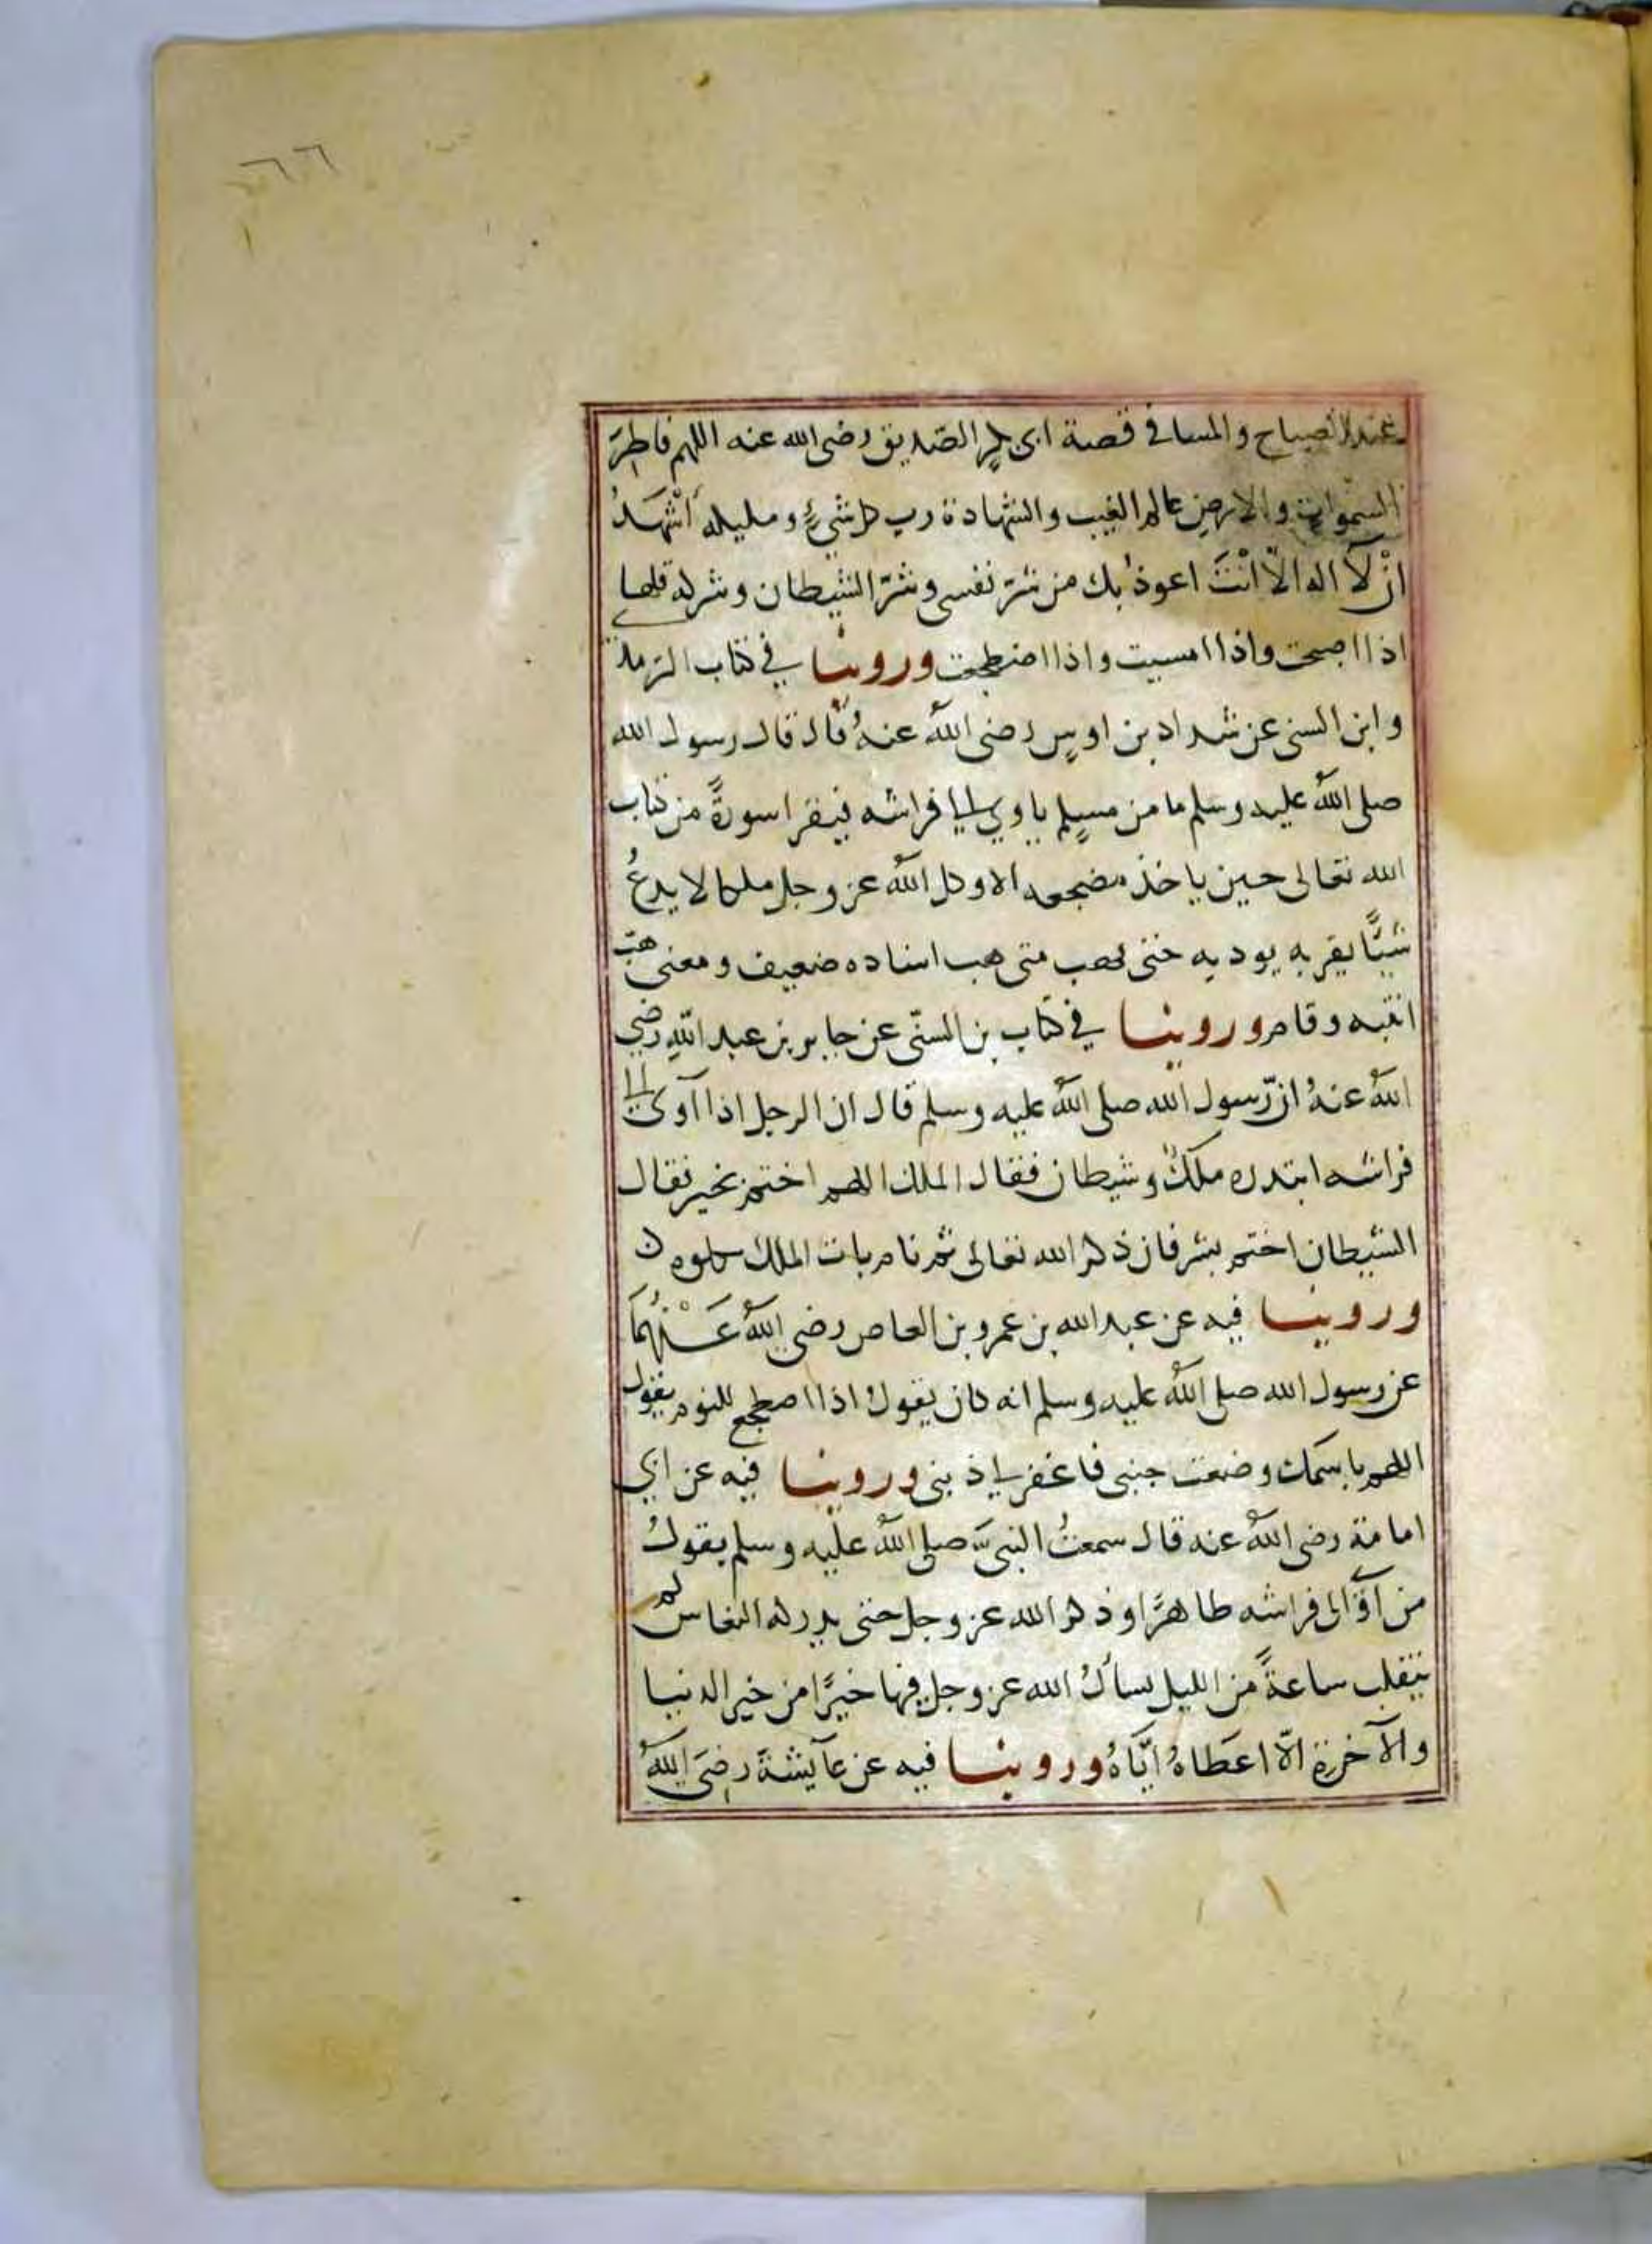 ٦٦
عند الصباح والمسا في قصة ابى بكرٍ الصّديق رضى الله عنه اللهم فاطِرَ
السّموات والارض عالم الغيب والشهادة رب كل شيءٍ ومليكه أشْهَدُ
انْ لآ اله الّا انْتَ اعوذ بك من شرّ نفسى وشرّ الشيطان وشركه قلها
اذا اصبحت واذا امسيت واذا اضطجعت وروينا في كتاب الترمذ
وابن السنى عن شداد بن اوسٍ رضى اللهُ عنهُ قال قال رسول الله
صلى اللهُ عليه وسلم ما من مسلمٍ ياوي الى فراشه فيقرا سورةً من كتاب
الله تعالى حين ياخذ مضجعه الا وكل اللهُ عز وجل ملكا لا يدعُ
شيًّا يقربه يوديه حتى يهب متى هب اسناده ضعيف ومعنى هبّ
انتبه وقام وروينا في كتاب بن السنّى عن جابر بن عبد اللهِ رضي
اللهُ عنهُ انّ رسول الله صلى اللهُ عليه وسلم قال ان الرجل اذا آوى الى
فراشه ابتدره ملكٌ وشيطان فقال الملك اللهم اختم بخير فقال
الشيطان اختم بشر فان ذكر الله تعالى ثم نام بات الملك يكلوه
وروينا فيه عن عبد الله بن عمرو بن العاص رضي اللهُ عَنْهُمَا
عن رسول الله صلى اللهُ عليه وسلم انه كان يقولُ اذا اضطجع للنوم يقول
اللهم باسمك وضعت جنبى فاغفر لي ذنبى وروينا فيه عن ابي
امامة رضى اللهُ عنه قال سمعتُ النبىَّ صلى اللهُ عليه وسلم يقولُ
من آوَى الى فراشه طاهرًا وذكر الله عز وجل حتى يدركه النعاس لم
يتقلب ساعةً من الليل يسألُ الله عز وجل فيها خيرًا من خير الدنيا
والآخرة الّا اعطَاهُ ايّاهُ وروينا فيه عن عآيشةَ رضىَ اللهُ